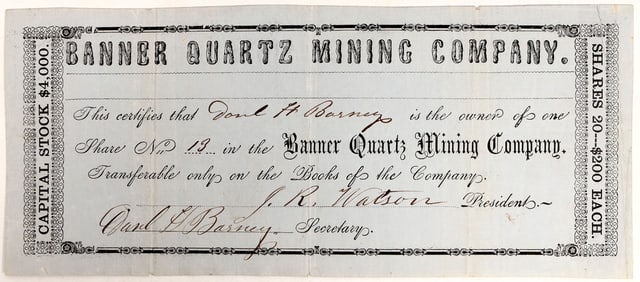 BANNER QUARTZ MINING COMPANY.
CAPITAL STOCK $4,000.
This certifies that Danl H Barney is the owner of one
Share No. 13 in the Banner Quartz Mining Company.
Transferable only on the Books of the Company.
J. R. Watson President.
Danl H Barney Secretary.
SHARES 20—$200 EACH.